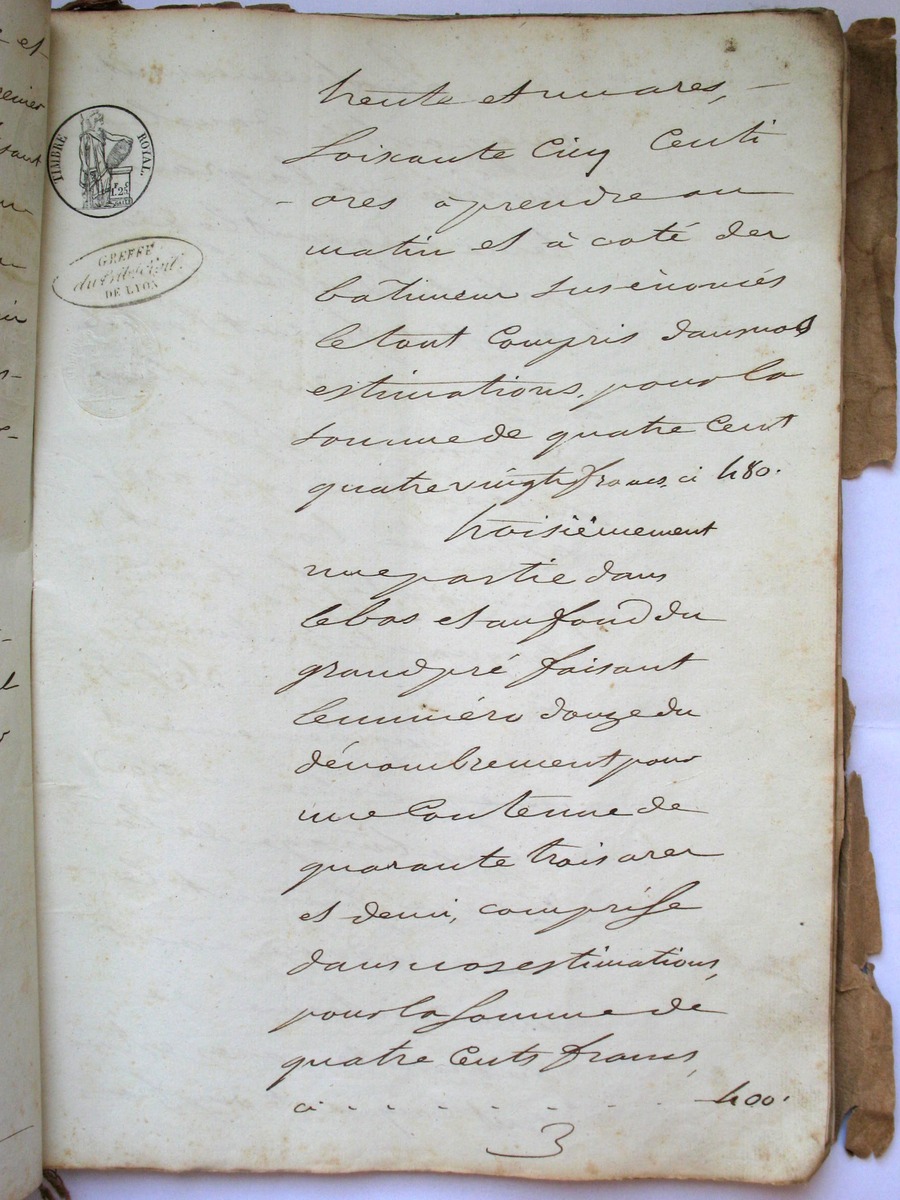 TIMBRE ROYAL
1f. 25c
GREFFE
du trib. civil
DE LYON
trente et un ares,
soixante cinq centi
ares à prendre au
matin et à coté des
batimens susénoncés
le tout compris dans nos
estimations, pour la
somme de quatre cent
quatre vingt francs, ci 480.
troisièmement
une partie dans
le bas et au fond du
grand pré faisant
le numéro douze du
dénombrement pour
une contenue de
quarante trois ares
et demi, comprise
dans nos estimations,
pour la somme de
quatre cents francs,
ci - - - - - - - 400.
3